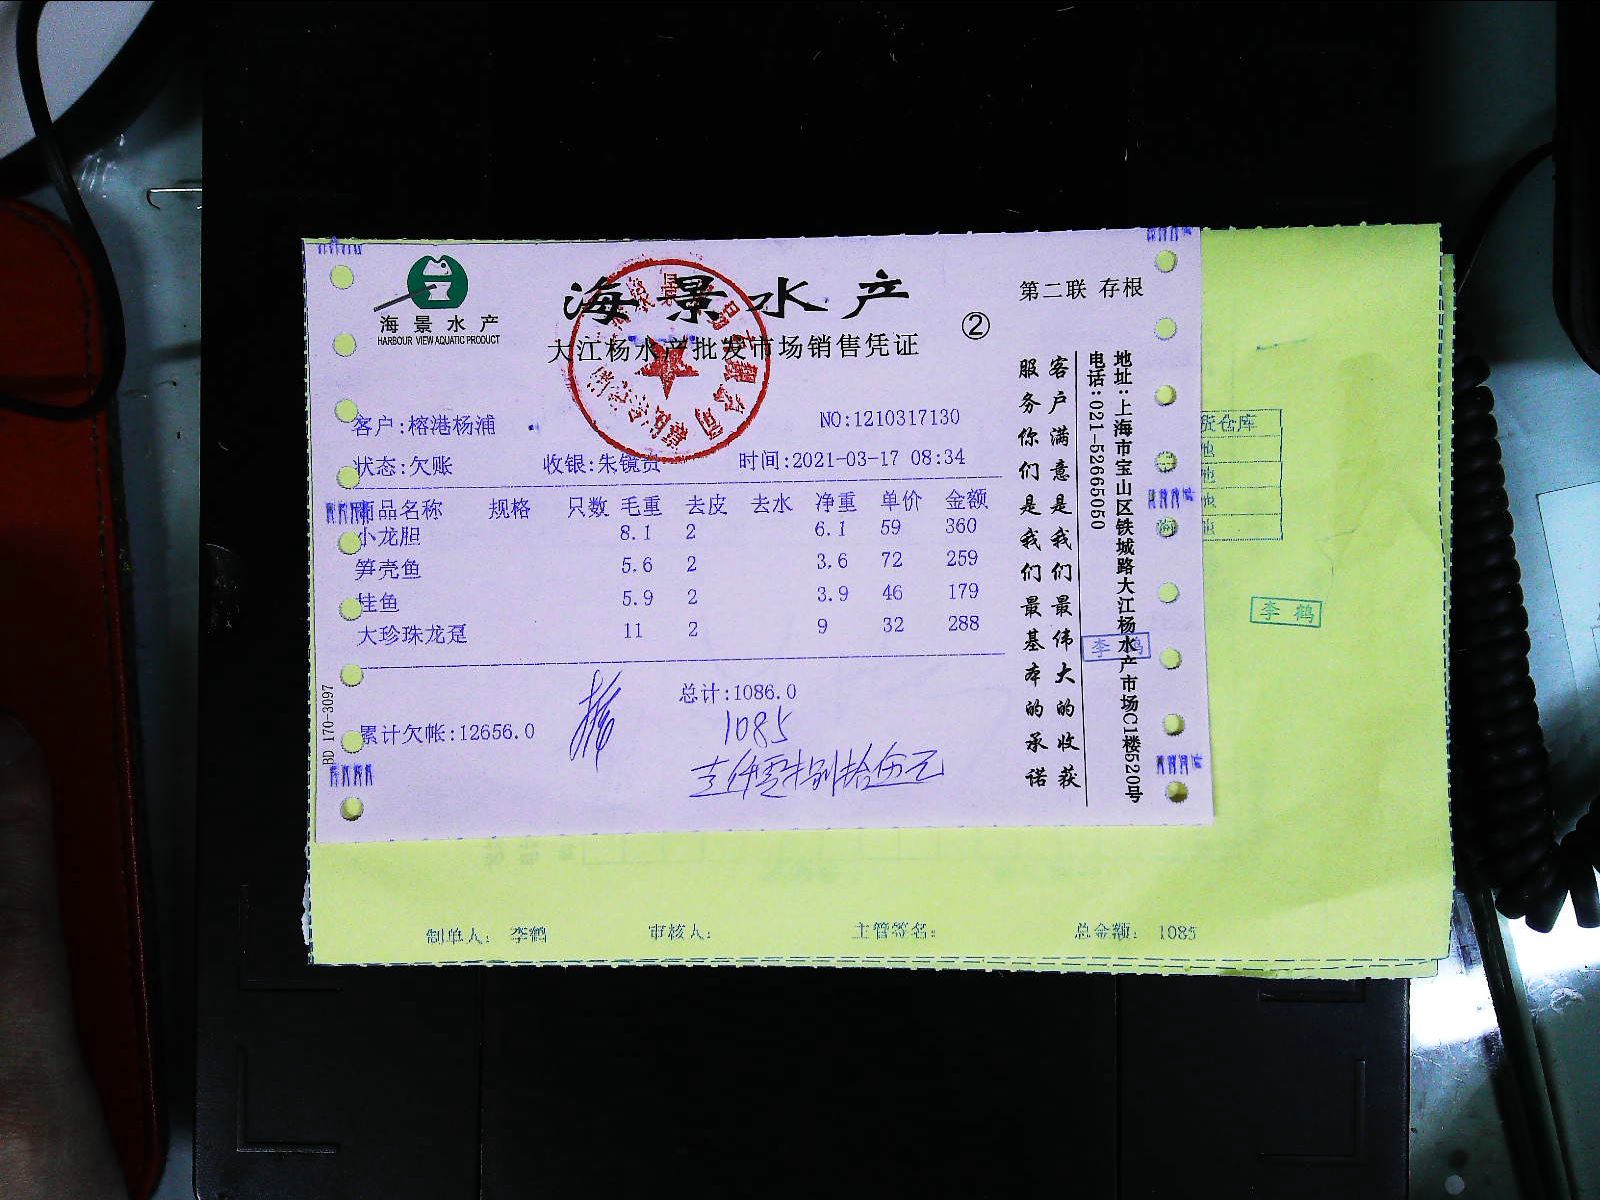 海景水产
HARBOUR VIEW AQUATIC PRODUCT
海景水产
大江杨水产批发市场销售凭证
②
第二联 存根
客户:榕港杨浦
NO:1210317130
状态:欠账 收银:朱镜贵 时间:2021-03-17 08:34
商品名称 规格 只数 毛重 去皮 去水 净重 单价 金额
小龙胆 8.1 2 6.1 59 360
笋壳鱼 5.6 2 3.6 72 259
桂鱼 5.9 2 3.9 46 179
大珍珠龙趸 11 2 9 32 288
总计:1086.0
累计欠帐:12656.0
1085
壹仟零捌拾伍元
BD 170-3097
客户满意是我们最伟大的收获
服务你们是我们最基本的承诺
地址:上海市宝山区铁城路大江杨水产市场C1楼520号
电话:021-52665050
李鹤
货仓库
李鹤
制单人: 李鹤 审核人: 主管签名: 总金额: 1085